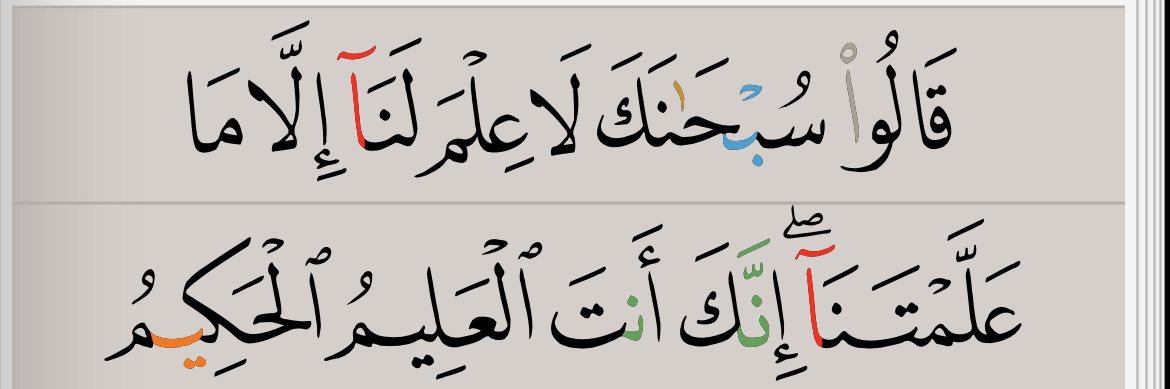 قَالُوا۟ سُبْحَٰنَكَ لَا عِلْمَ لَنَآ إِلَّا مَا
عَلَّمْتَنَآ ۖ إِنَّكَ أَنتَ ٱلْعَلِيمُ ٱلْحَكِيمُ